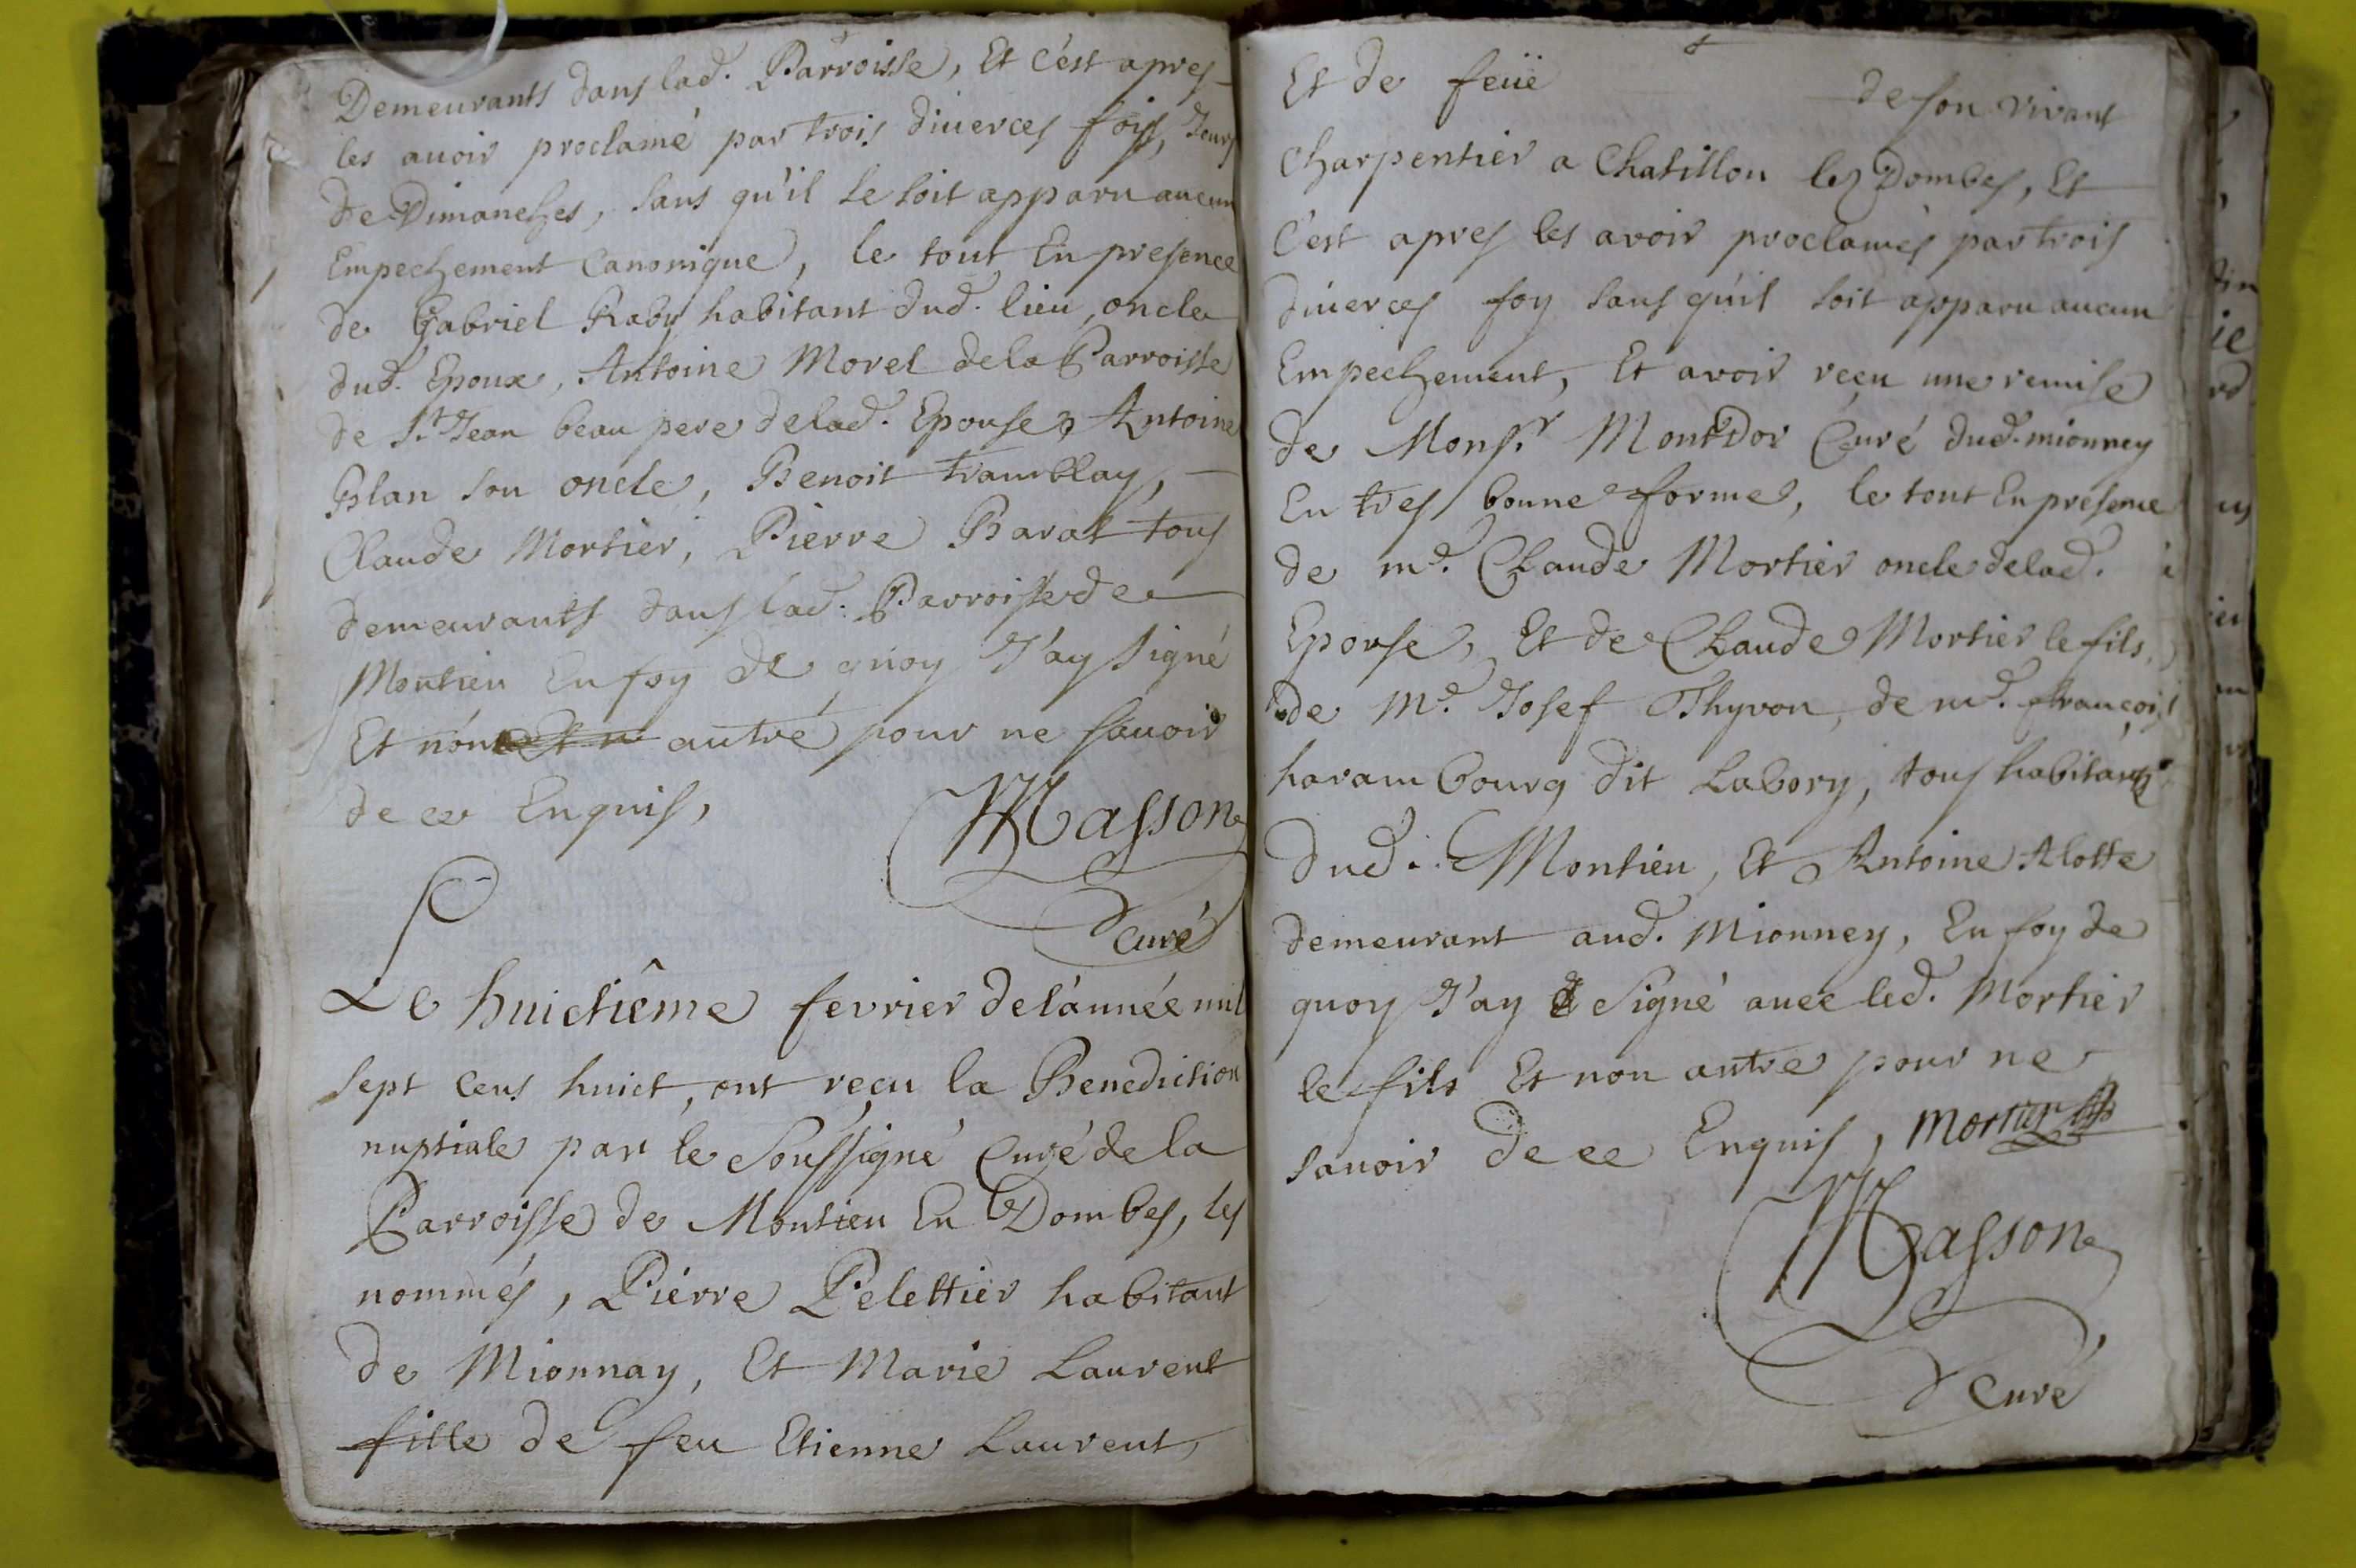 Demeurants dans lad. Parroisse, Et c'est apres
les auoir proclamé par trois diuerces fois, Jours
de Dimanches, sans qu'il se soit apparu aucun
Empechement Canonique, le tout En presence
de Gabriel Raby habitant dud. lieu, oncle
dud. Epoux, Antoine Morel dela Parroisse
de St. Jean beau pere delad. Epouse, Antoine
Plan son oncle, Benoit tramblay,
Claude Mortier, Pierre Barat tous
demeurants dans lad. Parroisse de
Montieu En foy de quoy J'ay signé
Et non autre pour ne sauoir
de ce Enquis,
Masson
Curé
Le huictiême fevrier de l'année mil
sept cens huict, ont reçu la Benediction
nuptiale par le Soussigné Curé de la
Parroisse de Montieu En Dombes, les
nommés, Pierre Pelettier habitant
de Mionnay, Et Marie Laurent
fille de feu Etienne Laurent,
Et de feüe de son vivant
Charpentier a Chatillon les Dombes, Et
C'est apres les avoir proclamés par trois
diuerces foy sans qu'il soit apparu aucun
Empechement, Et avoir reçu une remise
de Monsr. MontDor Curé dud. mionney
En tres bonne forme, le tout En presence
de md. Claude Mortier oncle delad.
Epouse, Et de Claude Mortier le fils,
de Md. Josef Thyvon, de md. françois
harambourg dit Labory, tous habitants
dud. Montieu, Et Antoine Alotte
demeurant aud. Mionney, En foy de
quoy J'ay Signé auec led. Mortier
le fils Et non autre pour ne
sauoir de ce Enquis, mortier
Masson
Curé